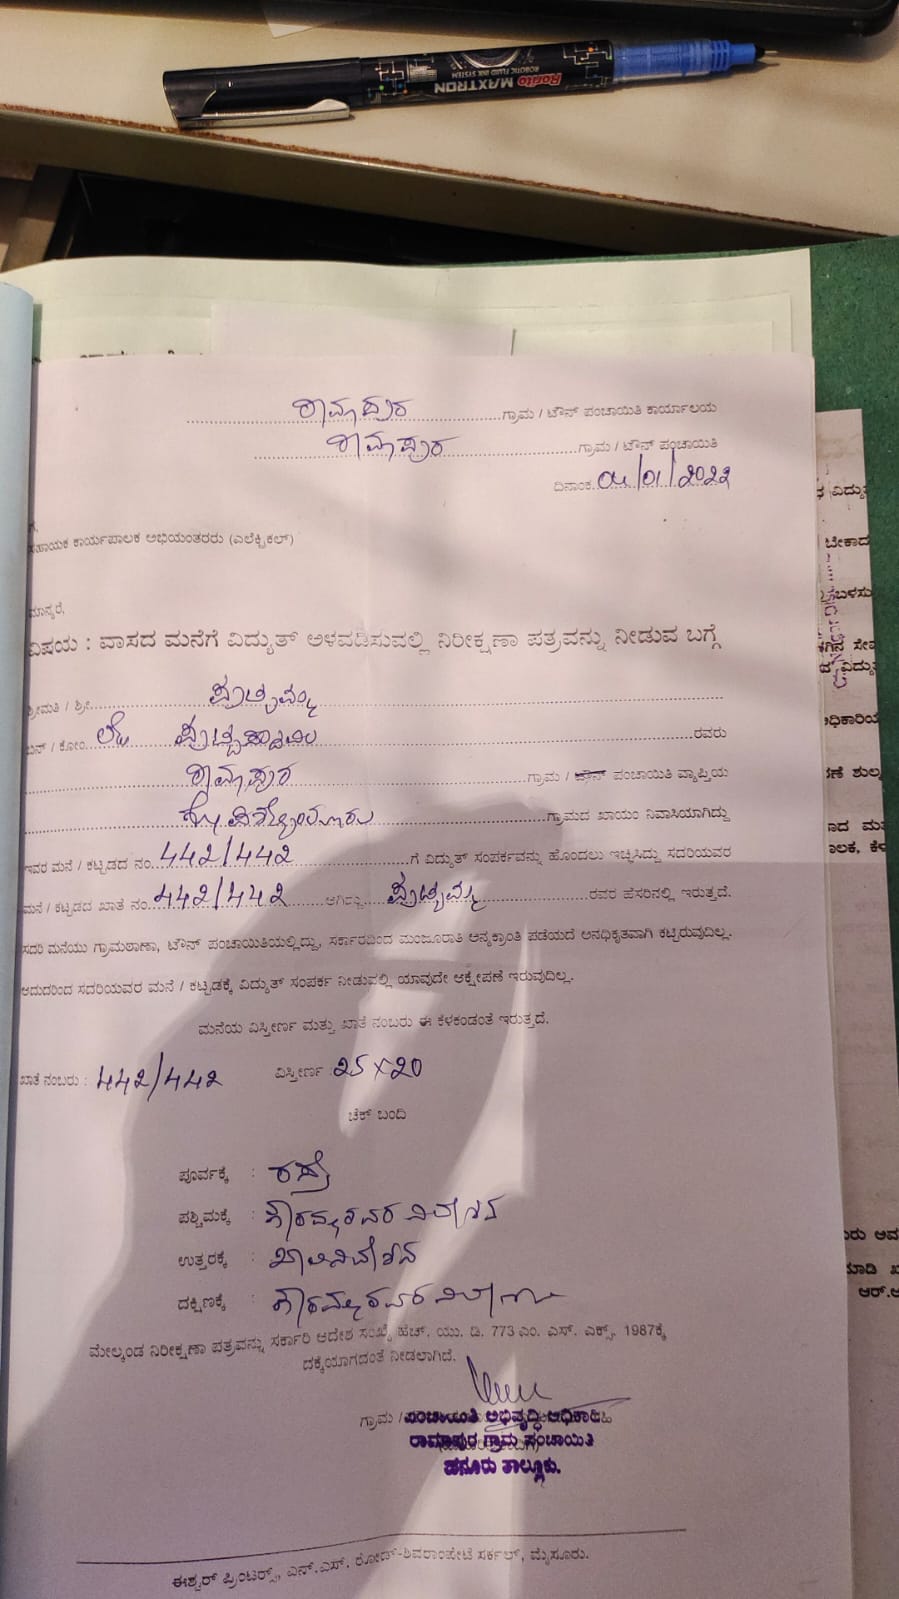 Rorito
MAXTRON
ROBOTIC FLUID INK SYSTEM
ರಾಮಾಪುರ ಗ್ರಾಮ / ಟೌನ್ ಪಂಚಾಯಿತಿ ಕಾರ್ಯಾಲಯ
ರಾಮಾಪುರ ಗ್ರಾಮ / ಟೌನ್ ಪಂಚಾಯಿತಿ
ದಿನಾಂಕ 04/01/2022
ಗೆ,
ಸಹಾಯಕ ಕಾರ್ಯಪಾಲಕ ಅಭಿಯಂತರರು (ಎಲೆಕ್ಟ್ರಿಕಲ್)
ಮಾನ್ಯರೆ,
ವಿಷಯ : ವಾಸದ ಮನೆಗೆ ವಿದ್ಯುತ್ ಅಳವಡಿಸುವಲ್ಲಿ ನಿರೀಕ್ಷಣಾ ಪತ್ರವನ್ನು ನೀಡುವ ಬಗ್ಗೆ
ಶ್ರೀಮತಿ / ಶ್ರೀ ಪುಟ್ಟಮ್ಮ
ಬಿನ್ / ಕೋಂ ಲೇ ರವರು
ರಾಮಾಪುರ ಗ್ರಾಮ / ಟೌನ್ ಪಂಚಾಯಿತಿ ವ್ಯಾಪ್ತಿಯ
ಗ್ರಾಮದ ಖಾಯಂ ನಿವಾಸಿಯಾಗಿದ್ದು
ಇವರ ಮನೆ / ಕಟ್ಟಡದ ನಂ. 442/442 ಗೆ ವಿದ್ಯುತ್ ಸಂಪರ್ಕವನ್ನು ಹೊಂದಲು ಇಚ್ಛಿಸಿದ್ದು ಸದರಿಯವರ
ಮನೆ / ಕಟ್ಟಡದ ಖಾತೆ ನಂ. 442/442 ಆಗಿದ್ದು ಪುಟ್ಟಮ್ಮ ರವರ ಹೆಸರಿನಲ್ಲಿ ಇರುತ್ತದೆ.
ಸದರಿ ಮನೆಯು ಗ್ರಾಮಠಾಣಾ, ಟೌನ್ ಪಂಚಾಯಿತಿಯಲ್ಲಿದ್ದು, ಸರ್ಕಾರದಿಂದ ಮಂಜೂರಾತಿ ಅನ್ಯಕ್ರಾಂತಿ ಪಡೆಯದೆ ಅನಧಿಕೃತವಾಗಿ ಕಟ್ಟಿರುವುದಿಲ್ಲ.
ಆದುದರಿಂದ ಸದರಿಯವರ ಮನೆ / ಕಟ್ಟಡಕ್ಕೆ ವಿದ್ಯುತ್ ಸಂಪರ್ಕ ನೀಡುವಲ್ಲಿ ಯಾವುದೇ ಆಕ್ಷೇಪಣೆ ಇರುವುದಿಲ್ಲ.
ಮನೆಯ ವಿಸ್ತೀರ್ಣ ಮತ್ತು ಖಾತೆ ನಂಬರು ಈ ಕೆಳಕಂಡಂತೆ ಇರುತ್ತದೆ.
ಖಾತೆ ನಂಬರು : 442/442 ವಿಸ್ತೀರ್ಣ : 25×20
ಚೆಕ್ ಬಂದಿ
ಪೂರ್ವಕ್ಕೆ : ರಸ್ತೆ
ಪಶ್ಚಿಮಕ್ಕೆ :
ಉತ್ತರಕ್ಕೆ : ಖಾಲಿ ನಿವೇಶನ
ದಕ್ಷಿಣಕ್ಕೆ :
ಮೇಲ್ಕಂಡ ನಿರೀಕ್ಷಣಾ ಪತ್ರವನ್ನು ಸರ್ಕಾರಿ ಆದೇಶ ಸಂಖ್ಯೆ ಹೆಚ್. ಯು. ಡಿ. 773 ಎಂ. ಎಸ್. ಎಕ್ಸ್. 1987ಕ್ಕೆ
ದಕ್ಕೆಯಾಗದಂತೆ ನೀಡಲಾಗಿದೆ.
ಗ್ರಾಮ /
ಪಂಚಾಯತಿ ಅಭಿವೃದ್ಧಿ ಅಧಿಕಾರಿ
ರಾಮಾಪುರ ಗ್ರಾಮ ಪಂಚಾಯಿತಿ
ಹನೂರು ತಾಲ್ಲೂಕು.
ಈಶ್ವರ್ ಪ್ರಿಂಟರ್ಸ್, ಎನ್.ಎಸ್. ರೋಡ್-ಶಿವರಾಂಪೇಟೆ ಸರ್ಕಲ್, ಮೈಸೂರು.